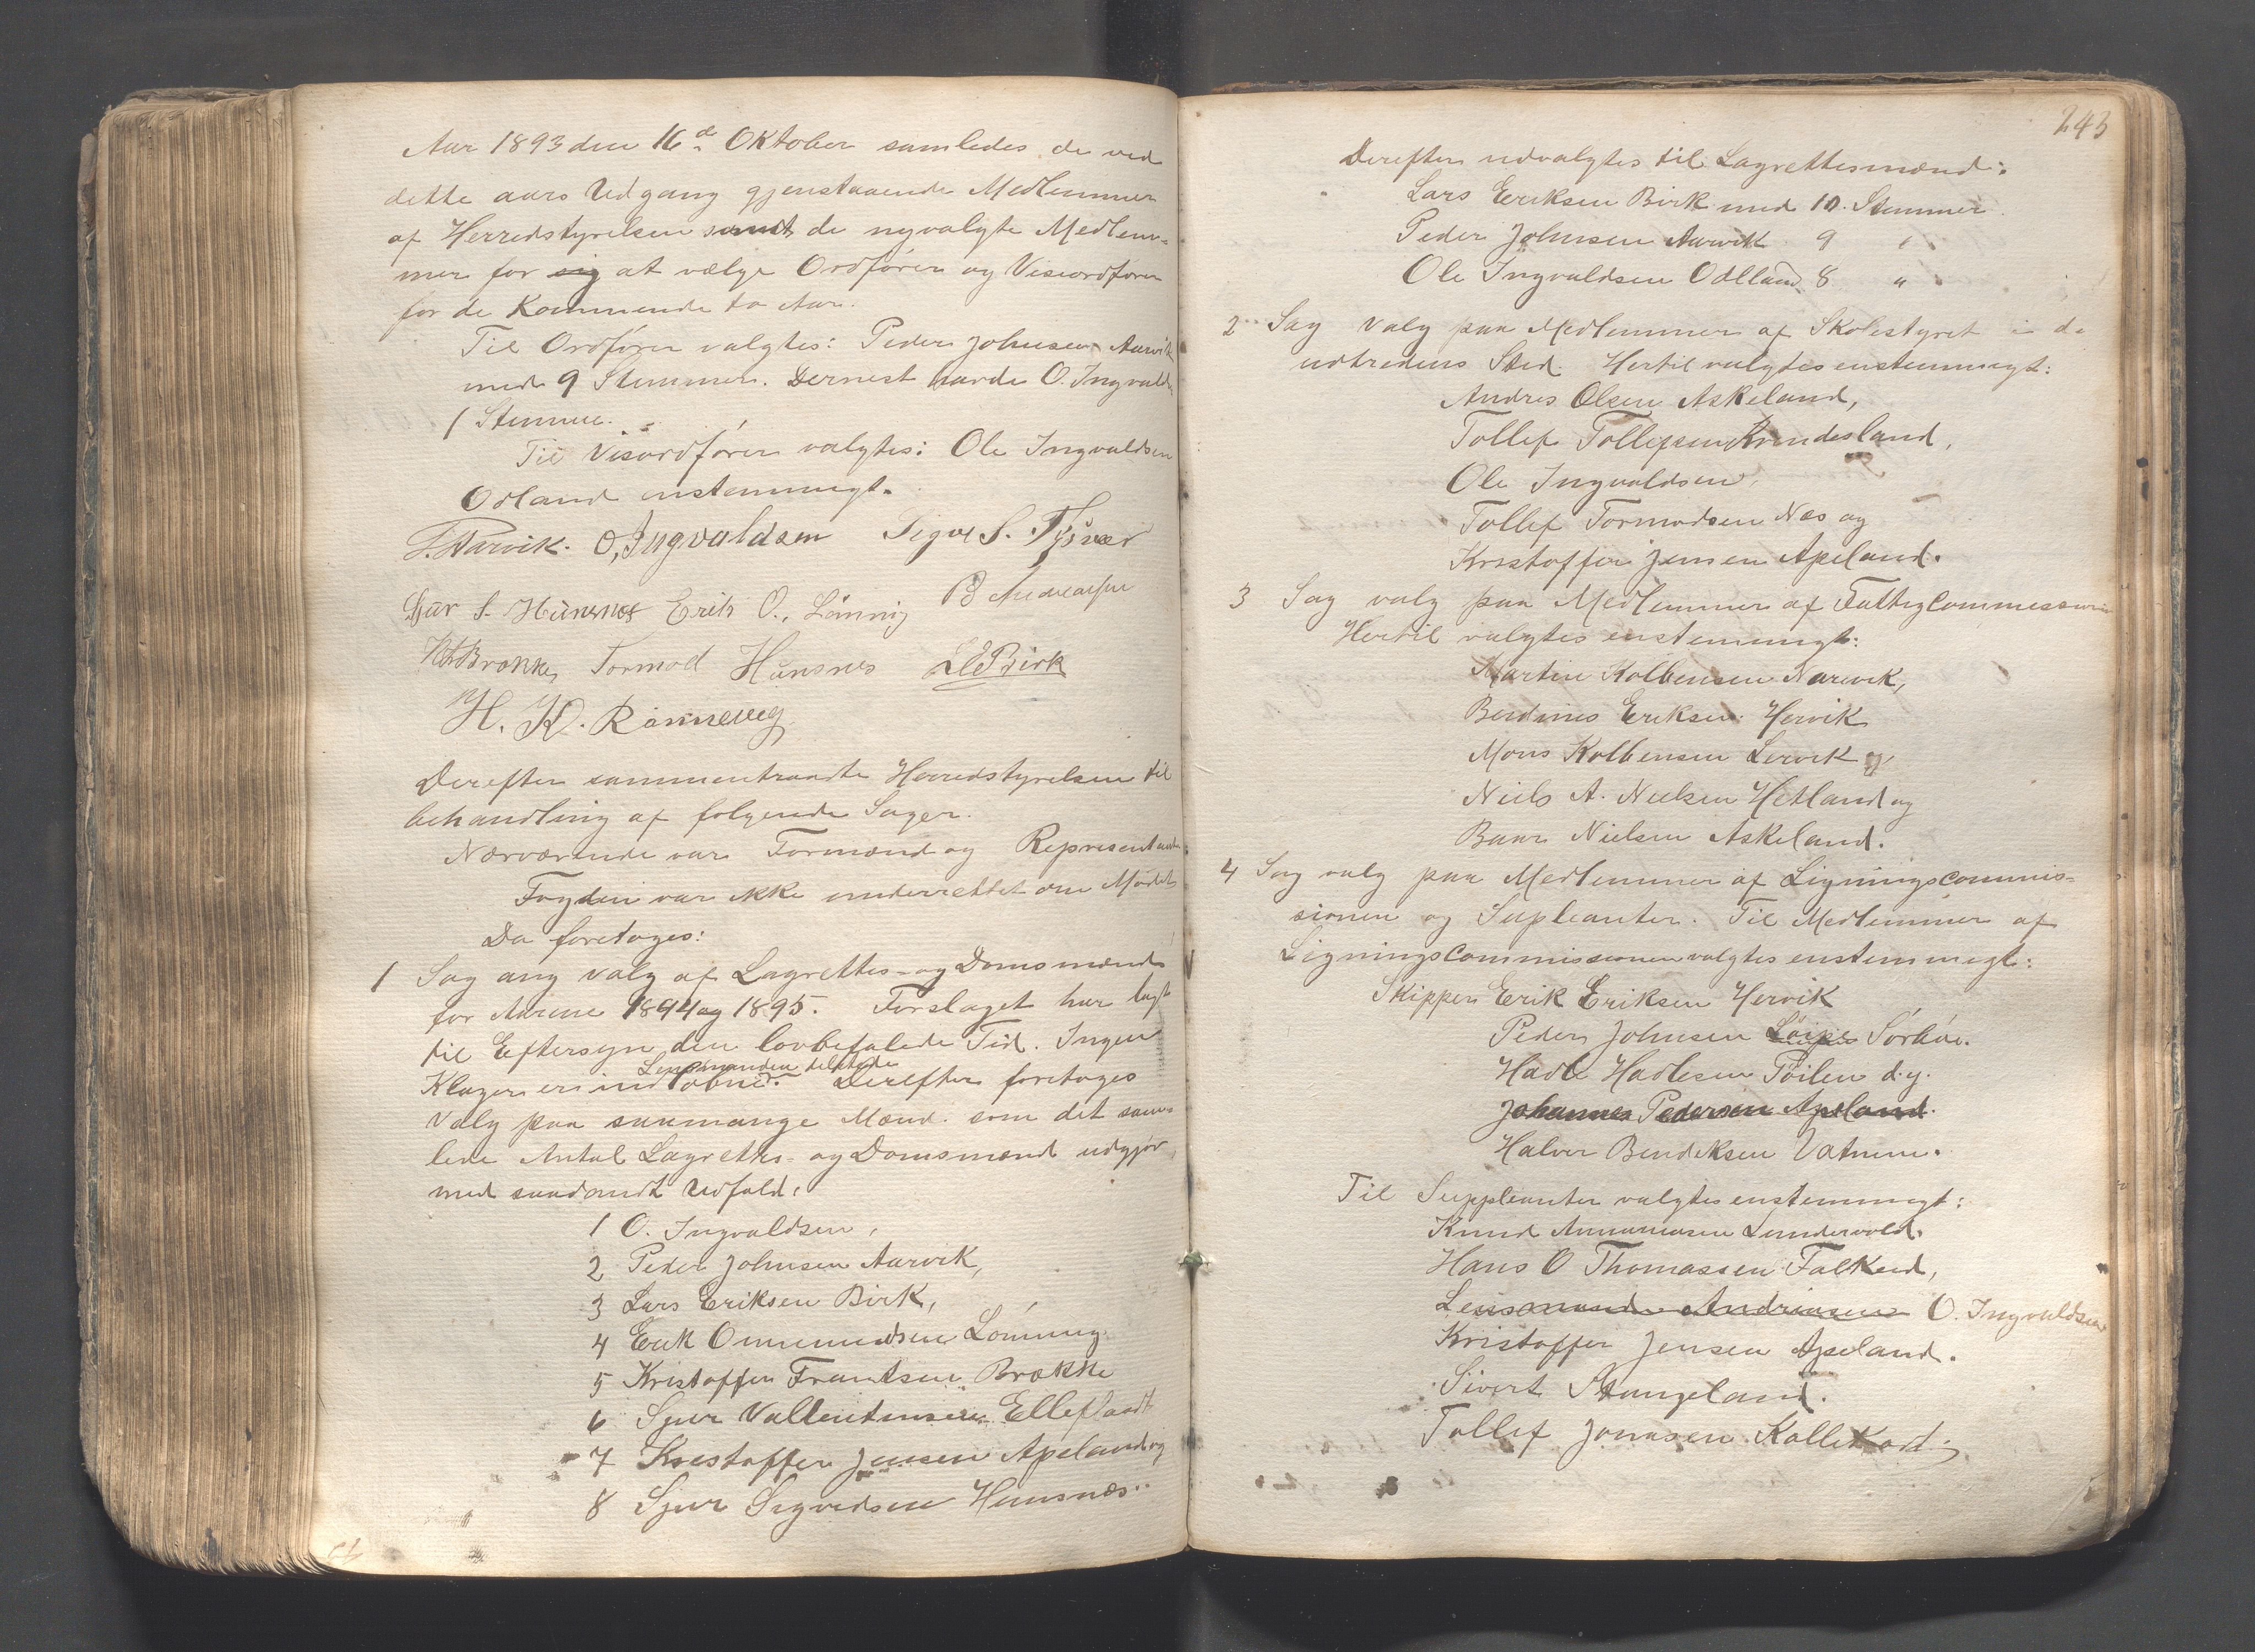 Aar 1893 den 16de Oktober samledes de ved
dette aars Udgang gjenstaaende Medlemmer
af Herredstyrelsen samt de nyvalgte Medlem-
mer for sig at vælge Ordfører og Viseordfører
for de Kommende to Aar.
Til Ordfører valgtes: Peder Johnsen Aarvik
med 9 Stemmer. Dernest havde O. Ingvalds
1 Stemme.
Til Viseordfører valgtes: Ole Ingvaldsen
Odland enstemmigt.
P. Aarvik. O, Ingvaldsen Sigve S. Tysvær
Sjur S. Hunsnes Erik O. Lönnig B Andreassen
Brække Tormod Hunsnes L E Birk
H. K. Rönnevig
Derefter sammentraadte Herredstyrelsen til
behandling af følgende Sager.
Nærværende var Formænd og Representanter
Fogden var ikke underrettet om Mödet
Da foretoges:
1 Sag ang valg af Lagrettes- og Domsmænd
for Aarene 1894 og 1895. Forslaget har lagt
til Eftersyn den lovbefalede Tid. Ingen
Lensmanden tilstede
Klager er ind Derefter foretoges
Valg paa saamange Mænd som det sam-
lede Antal Lagrettes- og Domsmænd udgjør,
med saadandt Udfald:
1 O. Ingvaldsen,
2 Peder Johnsen Aarvik,
3 Lars Eriksen Birk,
4 Erik Ommundsen Lönning.
5 Kristoffer Frantsen Brække
6 Sjur Vallentinsen
7 Kristoffer Jensen Apeland og
8 Sjur Sigvedsen Hunsnæs.
243
Derefter udvalgtes til Lagrettesmænd:
Lars Eriksen Birk med 10. Stemmer
Peder Johnsen Aarvik 9 "
Ole Ingvaldsen Odlland 8 "
2 Sag Valg paa Medlemmer af Skolestyret i de
udtredens Sted. Hertil valgtes enstemmigt:
Andres Olsen Askeland,
Tollef Tollefsen
Ole Ingvaldsen,
Tollef Tormodsen Næs og
Kristoffer Jensen Apeland.
3 Sag valg paa Medlemmer af Fattigcommissionen
Hertil valgtes enstemmigt:
Martin Kolbensen Narvik,
Berdines Eriksen Hervik
Mons Kolbensen Lervik og
Niels A. Nielsen Hetland og
Baar Nielsen Askeland.
4 Sag valg paa Medlemmer af Ligningscommis-
sionen og Supleanter. Til Medlemmer af
Ligningscommissionen valgtes enstemmigt:
Skipper Erik Eriksen Hervik
Peder Johnsen Sörböe.
Hadle Hadlesen Töilen d.y.
Johannes Pedersen Apeland.
Halvor Bendiksen Vatnem.
Til Suppleanter valgtes enstemmigt:
Knud Ananiasen Lundervold.
Hans O Thomassen Falkeid,
Lensmand Andreasen O. Ingvaldsen
Kristoffer Jensen Apeland.
Sivert Stangeland.
Tollef Jonasen